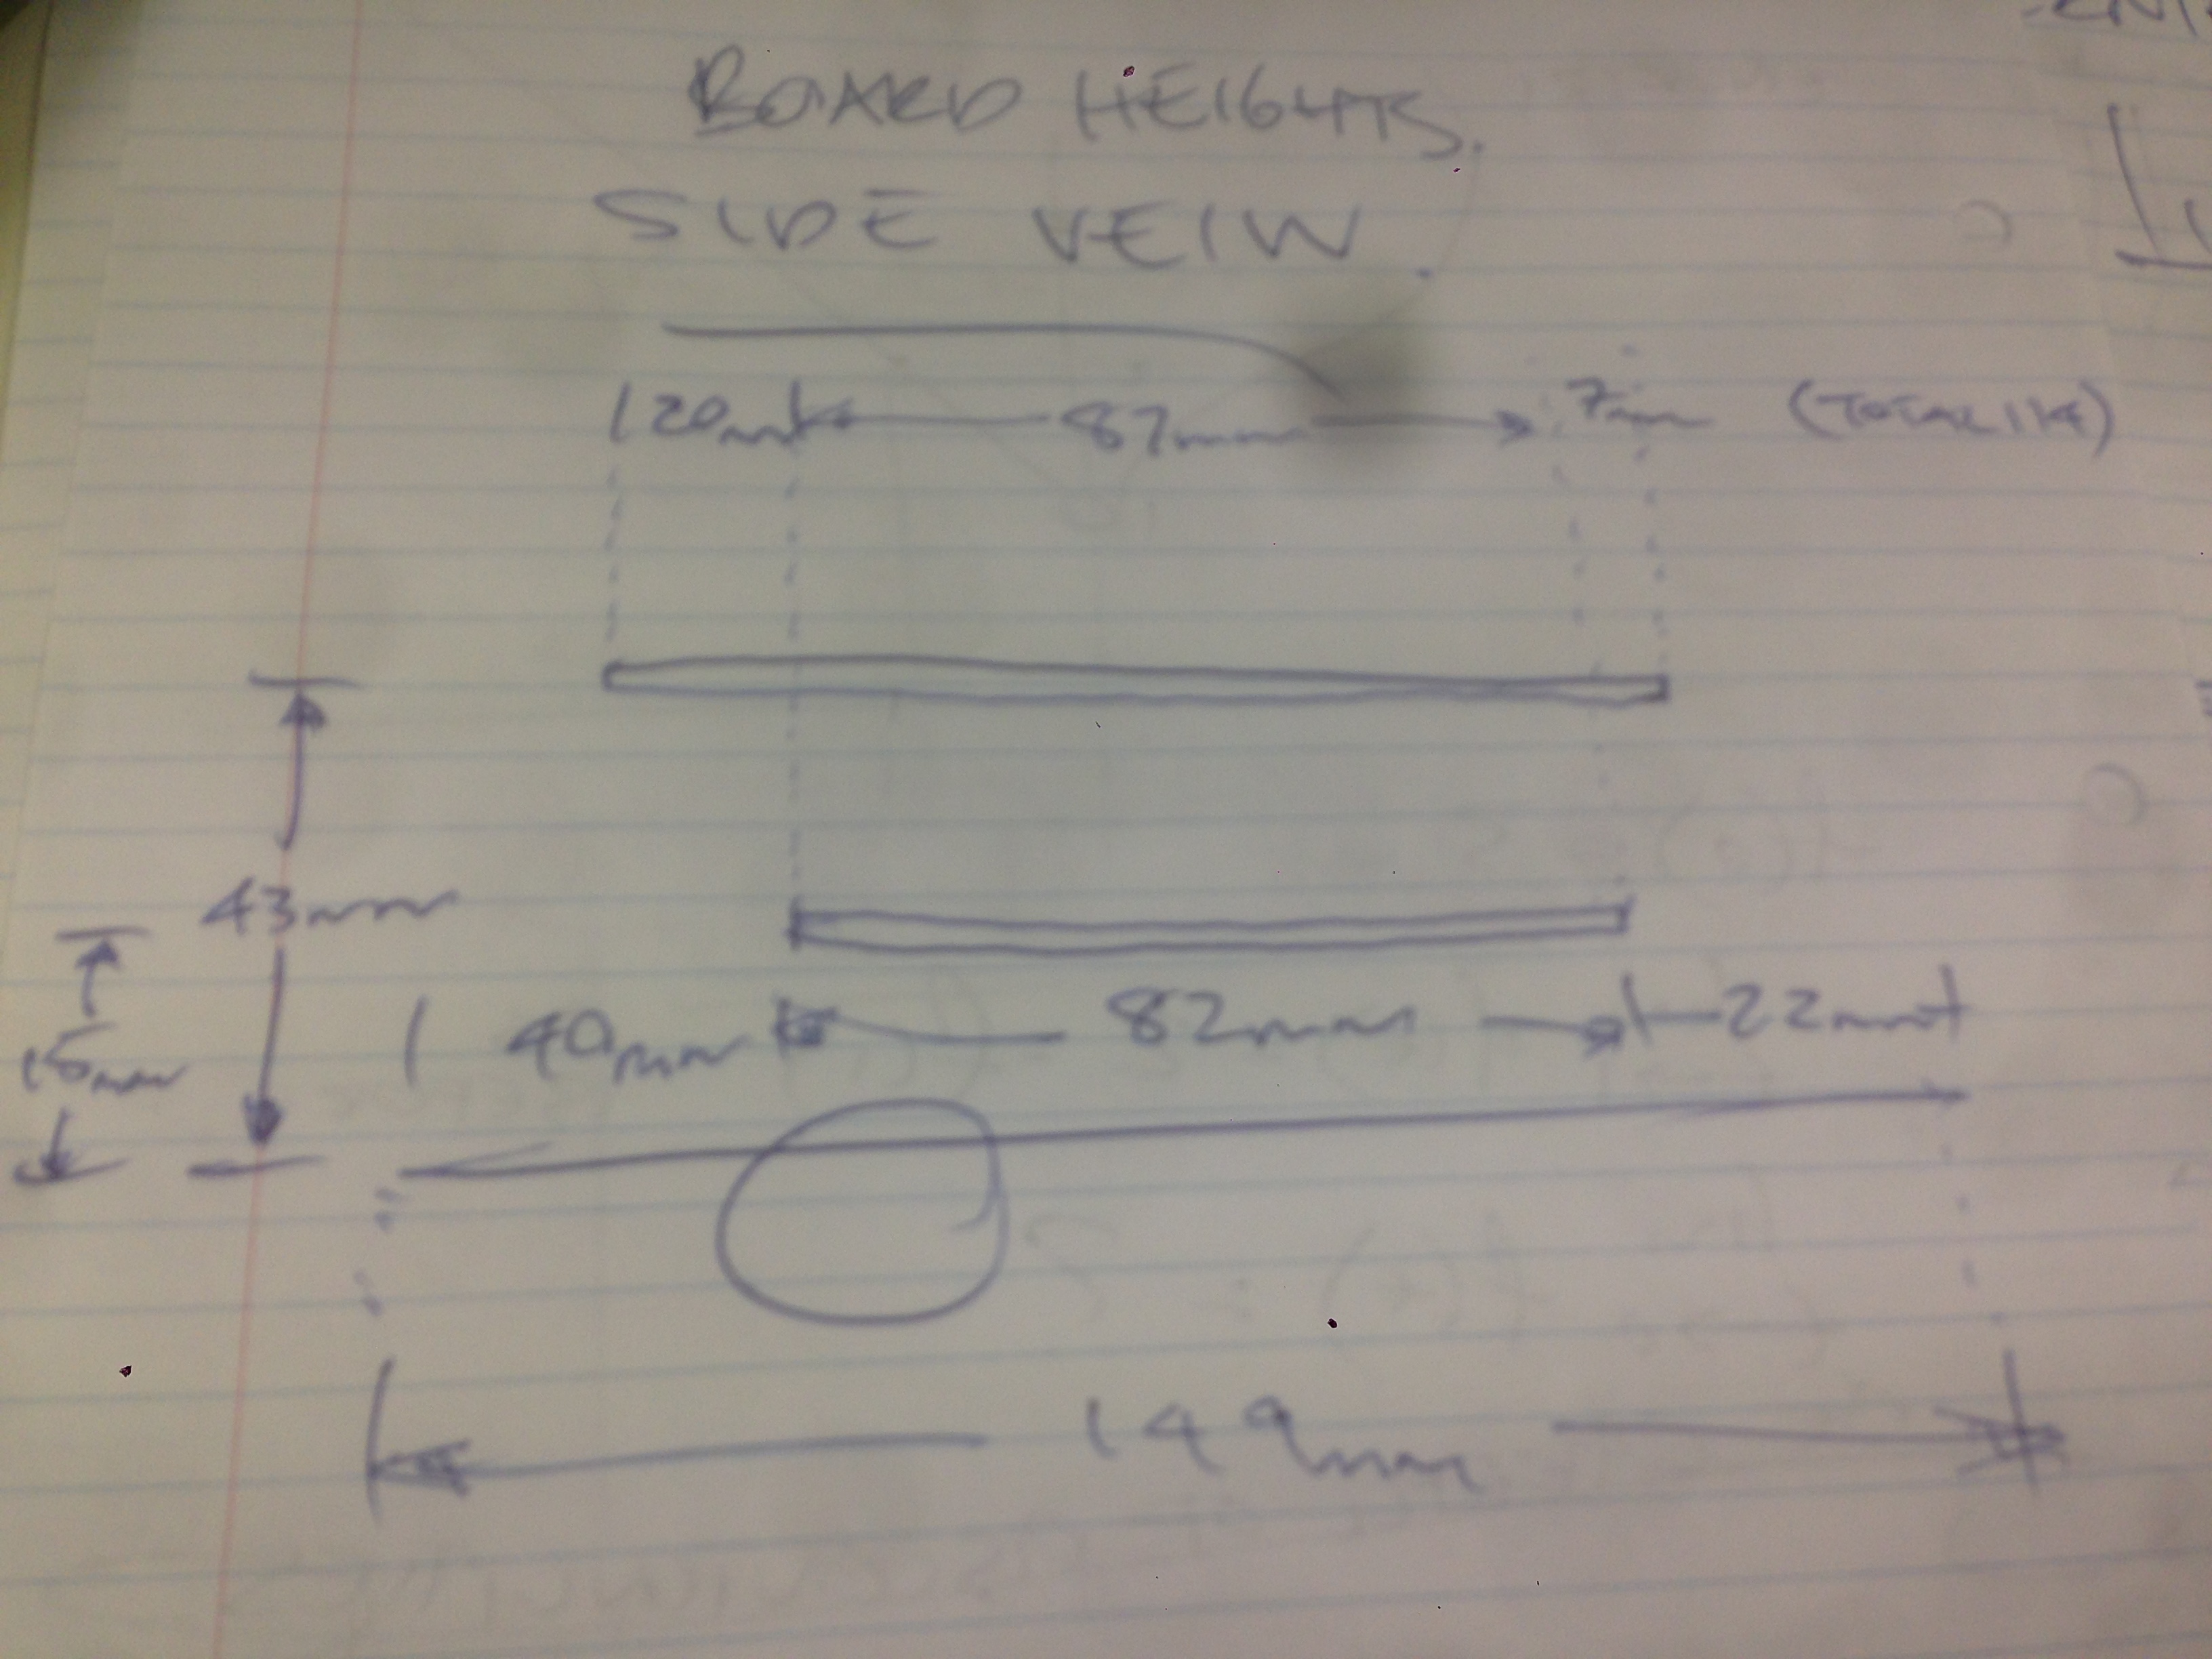 BOARD HEIGHTS.
SIDE VEIW.
120mm 87mm 7mm (TOTAL 114)
43mm
15mm
40mm 82mm 22mm
149mm